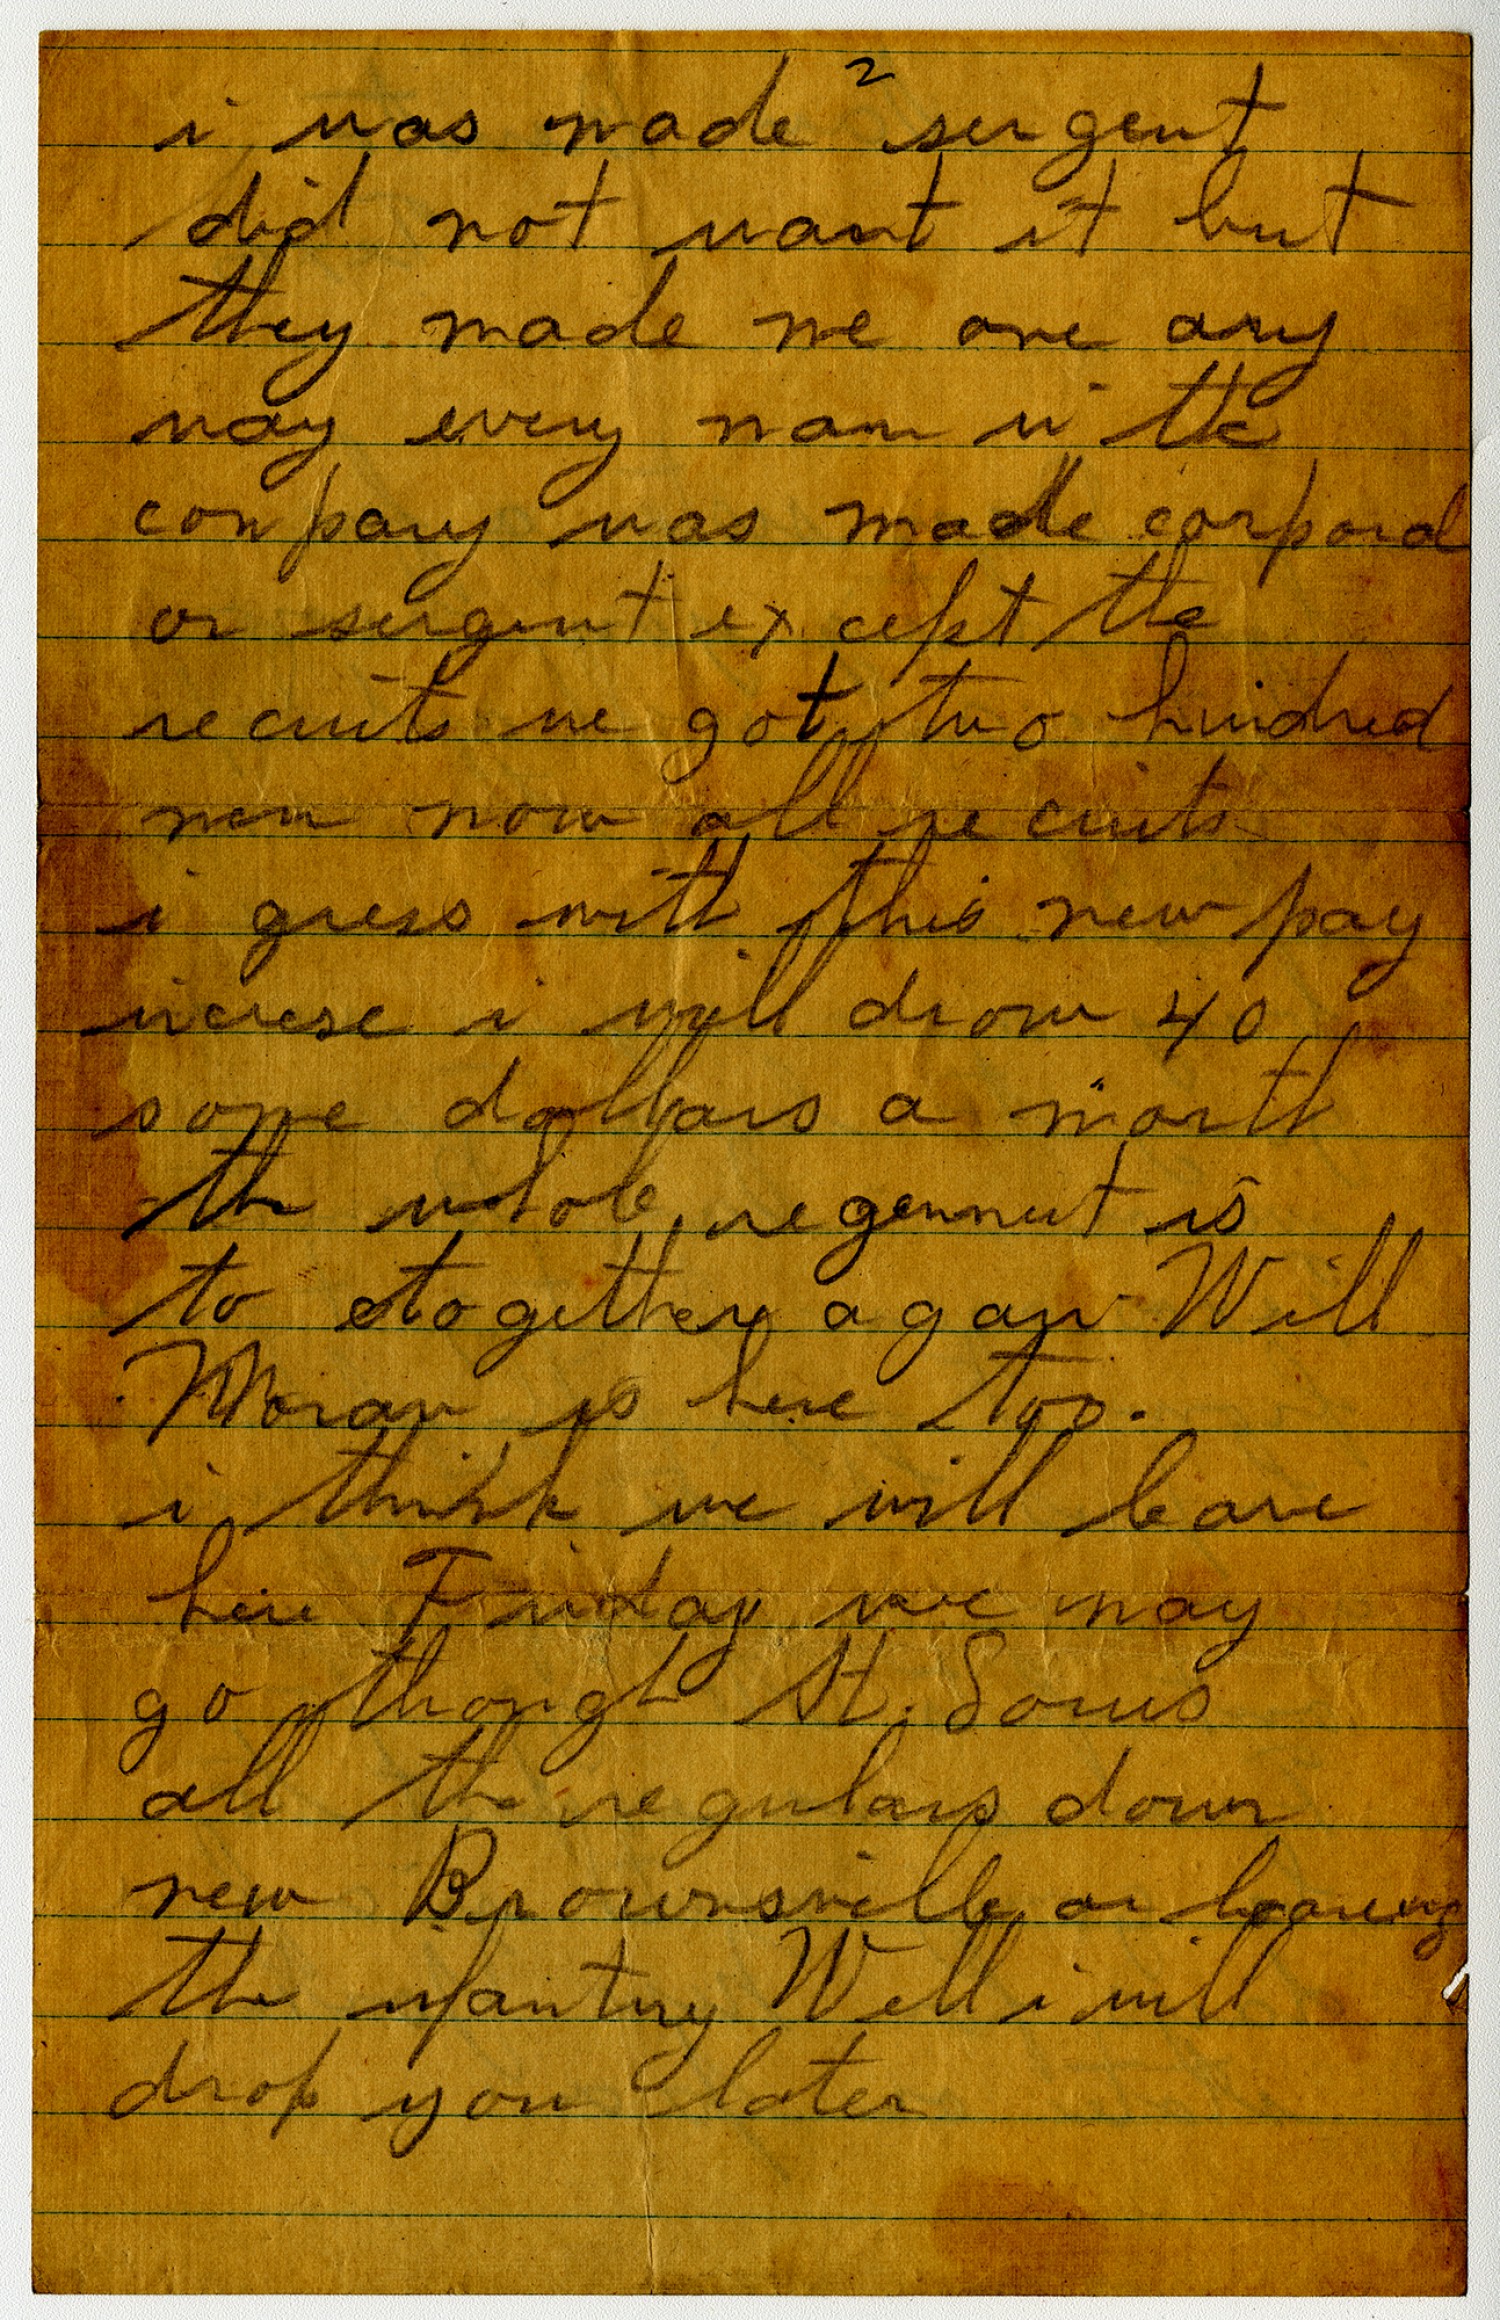 2
i was made sergent
did not want it but
they made me one any
way every man in the
conpany was made corporal
or sergent except the
recruits we got two hundred
men now all recruits
i guess with this new pay
increse i will draw 40
some dollars a month
the whole regement is
to together agan Will
Moran is here too.
i think we will leave
here Friday we may
go though St. Louis
all the regulars down
new Brownsville or leaveing
the infantry Well i will
drop you later